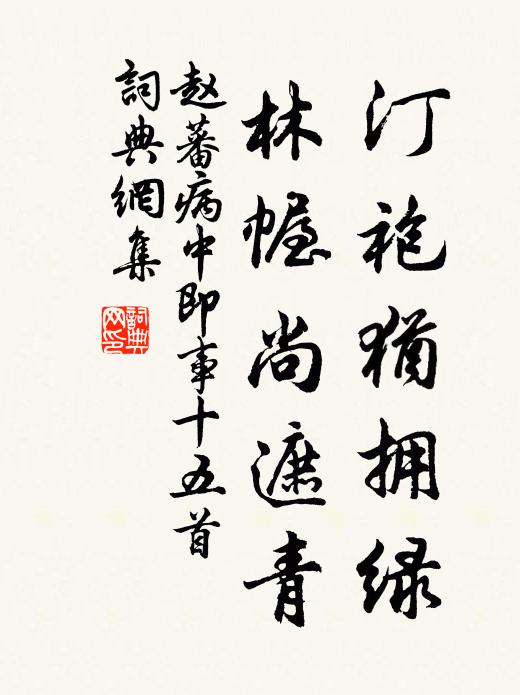 汀袍猶拥绿
林幄尚遮青
赵蕃病中即事十五首
詞典網集
詞典
网印